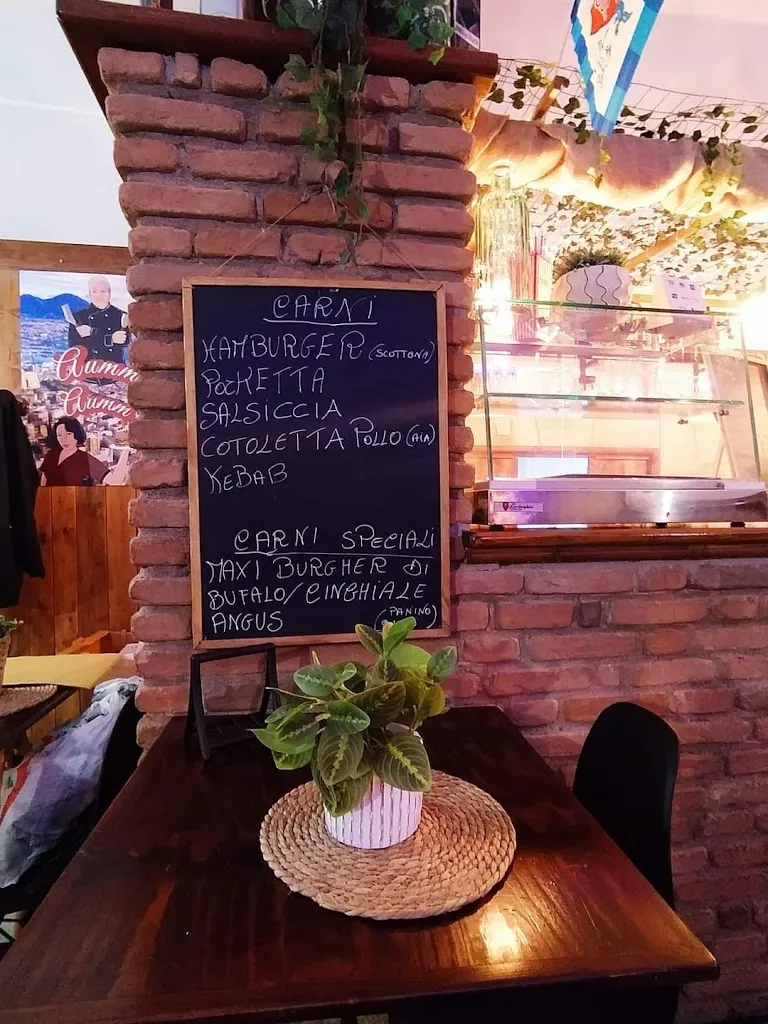 CARNI
HAMBURGER (SCOTTONA)
PORKETTA
SALSICCIA
COTOLETTA POLLO (AIA)
KEBAB
CARNI SPECIALI
MAXI BURGHER DI
BUFALO/CINGHIALE
ANGUS (PANINO)
Aumm
Aumm